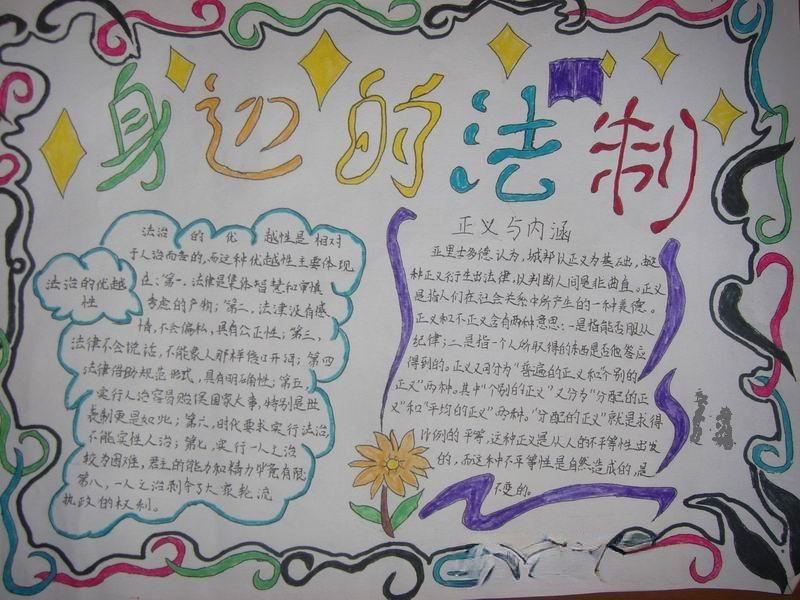 身边的法制
法治的优越性
法治的优越性是相对
于人治而言的,而这种优越性主要体现
在:第一,法律是集体智慧和审慎
考虑的产物;第二,法律没有感
情,不会偏私,具有公正性;第三,
法律不会说话,不能象人那样信口开河;第四
法律借助规范形式,具有明确性;第五,
实行人治容易贻误国家大事,特别是世
袭制更是如此;第六,时代要求实行法治,
不能实性人治;第七,实行一人之治
较为困难,君主的能力和精力毕竟有限
第八,一人之治剥夺了大家轮流
执政的权利。
正义与内涵
亚里士多德认为,城邦以正义为基础,由这
种正义衍生出法律,以判断人间是非曲直。正义
是指人们在社会关系中所产生的一种美德。
正义和不正义含有两种意思:一是指能否服从
纪律;二是指一个人所取得的东西是否他答应
得到的。正义又同分为“普遍的正义和“个别的
正义”两种。其中“个别的正义”又分为“分配的正
义”和“平均的正义”两种。“分配的正义”就是求得
比例的平等,这种正义是从人的不平等性出发
的,而这种不平等性是自然造成的,是
不变的。